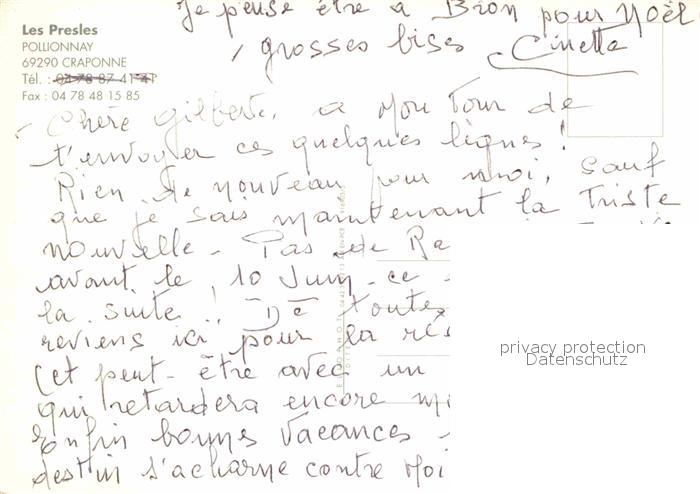 Je pense être à Bron pour Noël
grosses bises Cinetta
Les Presles
POLLIONNAY
69290 CRAPONNE
Tél. : 04 78 87 41 41
Fax : 04 78 48 15 85
Chère Gilberte, a mon tour de
t'envoyer ces quelques lignes !
Rien de nouveau pour moi, sauf
que je sais maintenant la Triste
nouvelle - Pas de Re
avant le 10 Juin - ce
la suite ! De toutes
reviens ici pour la rés
(et peut-être avec un
qui retardera encore m
Enfin bonnes vacances
destin s'acharne contre moi
privacy protection
Datenschutz